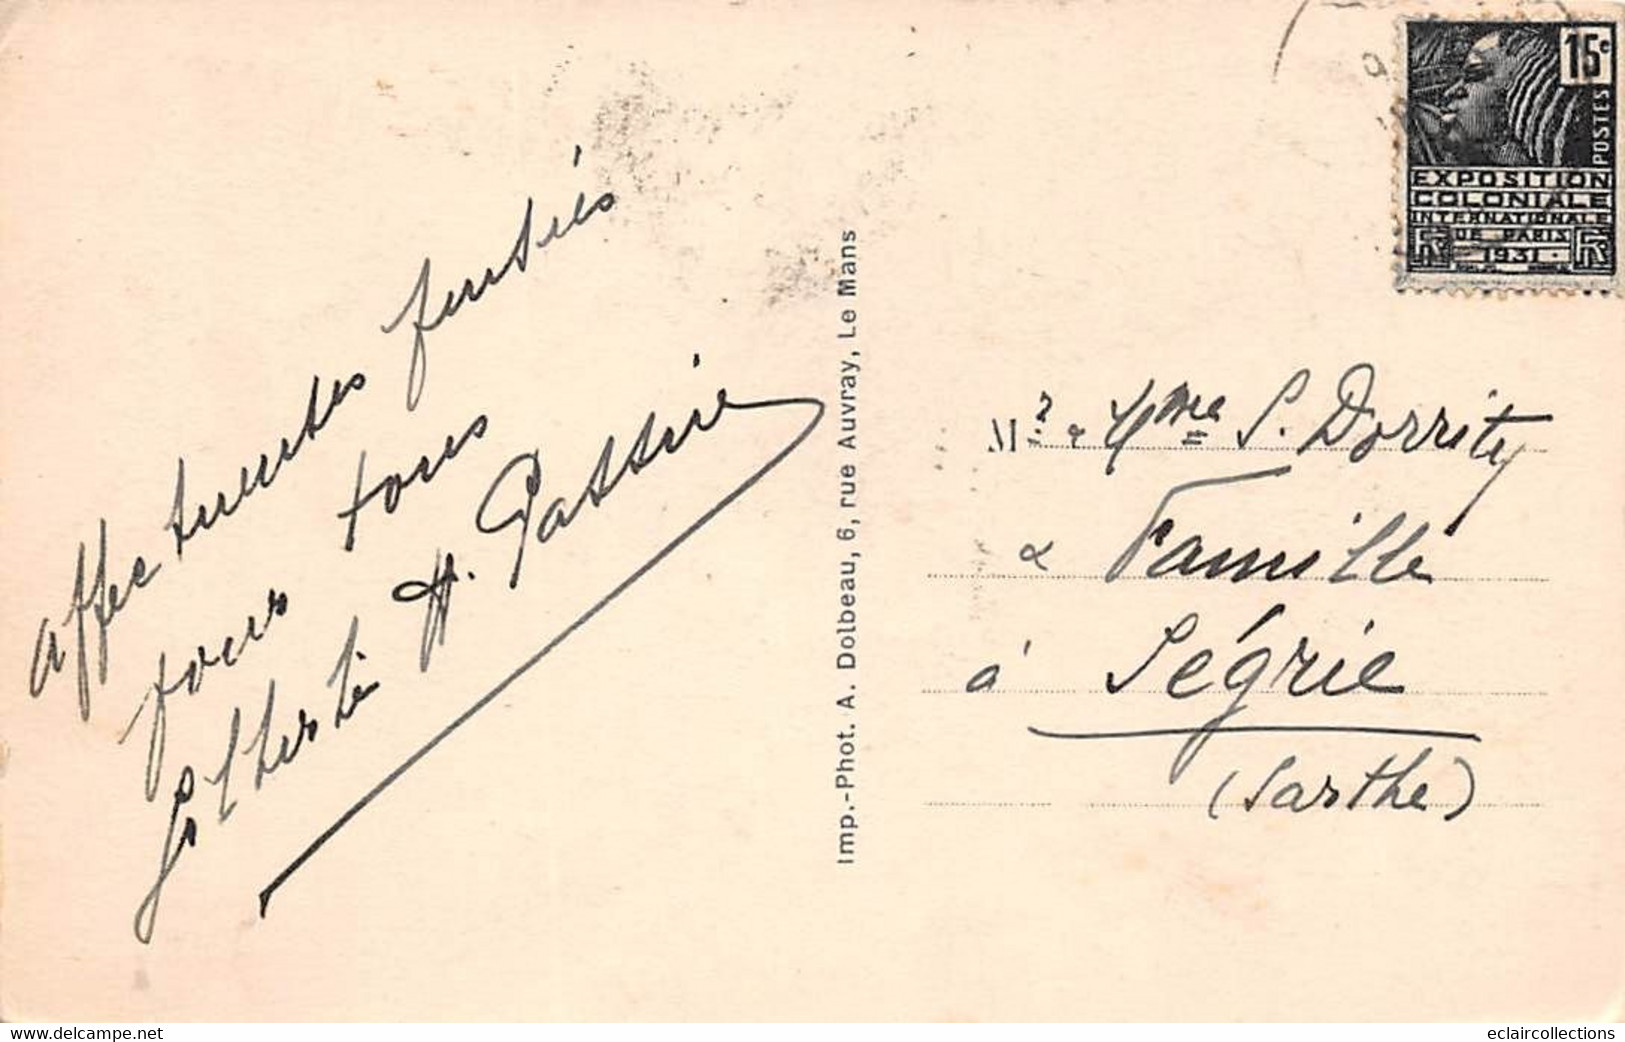 affectueuses pensées
pour tous
H. Passire
Imp.-Phot. A. Dolbeau, 6, rue Auvray, Le Mans
15c
POSTES
EXPOSITION
COLONIALE
INTERNATIONALE
DE PARIS
1931
RF RF
Mr & Mme S. Dorrity
& Famille
à Ségrie
(Sarthe)
www.delcampe.net
eclaircollections